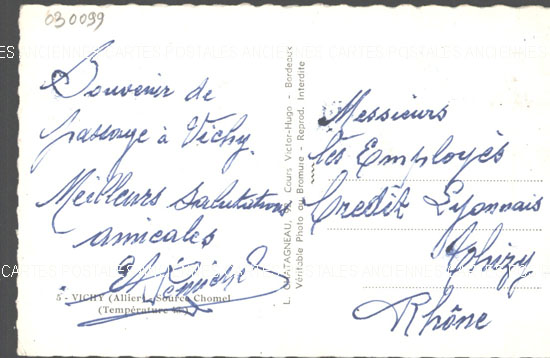 030099
ANCIENNES CARTES POSTALES ANCIENNES CARTES POSTALES ANCIENNES
Souvenir de
passage à Vichy.
Meilleurs salutations
amicales
5 - VICHY (Allier) - Source Chomel
(Température
L. CHATAGNEAU, Cours Victor-Hugo - Bordeaux
Véritable Photo au Bromure - Reprod. Interdite
Messieurs
les Employés
Credit Lyonnais
Rhône